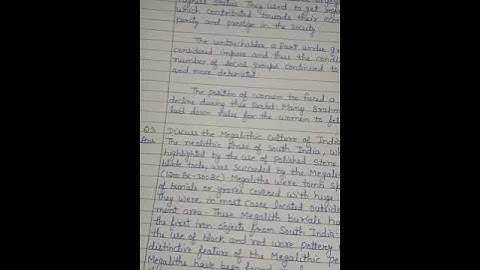 status They used to get
which contributed towards their
perity and prestige in the society
The untouchables, a part under
considered impure and thus the
number of social groups continued to
and more detoriate.
The position of women too faced a
decline during this Period. Many Brahm
laid down rules for the women to
Q3 Discuss the Megalithic culture of India
The neolithic phase of South India, wh
highlighted by the use of Polished Stone
blade tools, was succeeded by the Megali
(1200 BC-300 BC). Megaliths were tomb
of burials or graves covered with huge
They were, in most cases, located outside
ment area. These Megalith burials ha
the first iron objects from South India
the use of black and red ware pottery
distinctive feature of the Megalithic pe
Megaliths have been found in